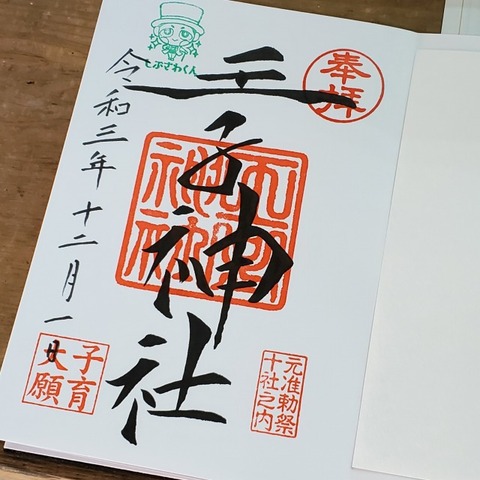 奉拝
王子神社
令和三年十二月一日
しぶさわくん
子育
大願
元准勅祭
十社之内